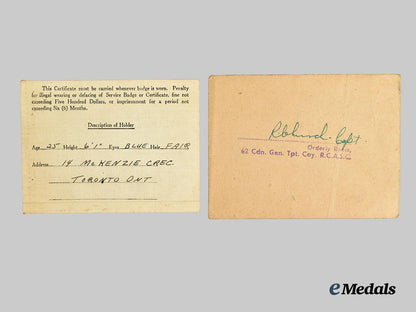 This Certificate must be carried whenever badge is worn. Penalty
for illegal wearing or defacing of Service Badge or Certificate, fine not
exceeding Five Hundred Dollars, or imprisonment for a period not
exceeding Six (6) Months.
Description of Holder
Age 25 Height 6'1" Eyes BLUE Hair FAIR
Address 14 McKENZIE CREC.
TORONTO ONT
Capt.
Orderly
62 Cdn. Gen. Tpt. Coy. R.C.A.S.C.
eMedals